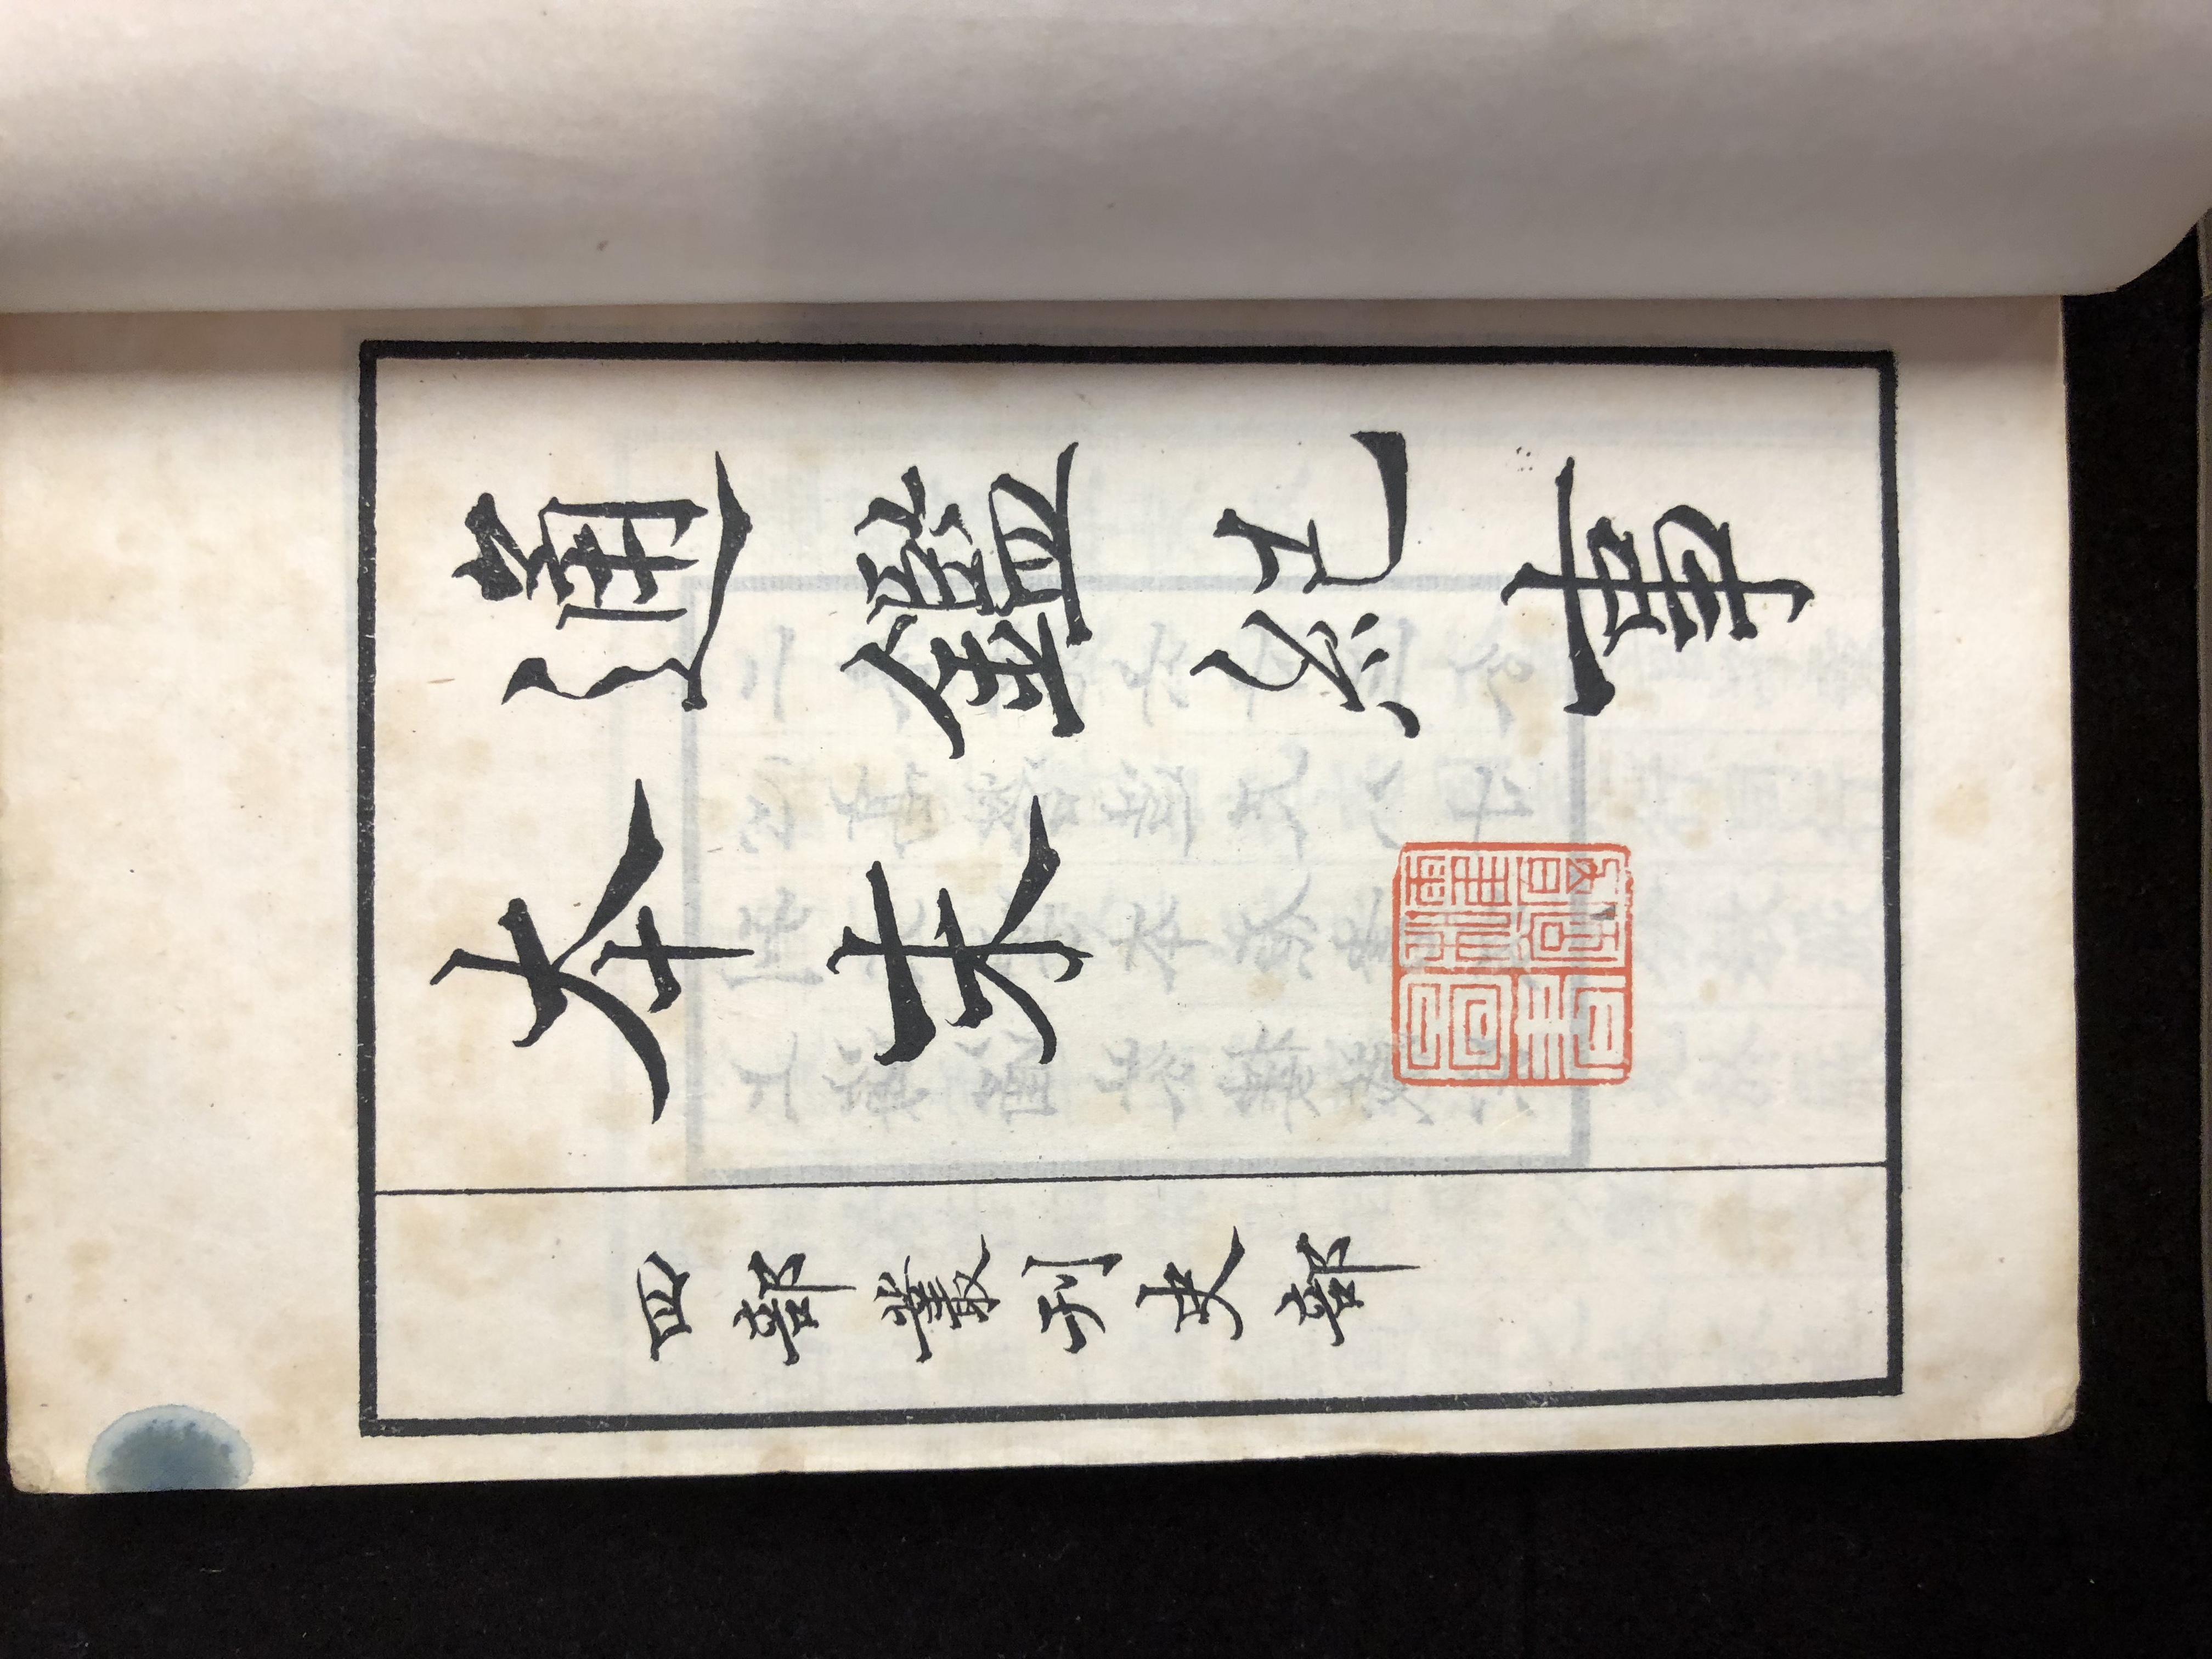 通鑑紀事
本末
四部叢刊史部